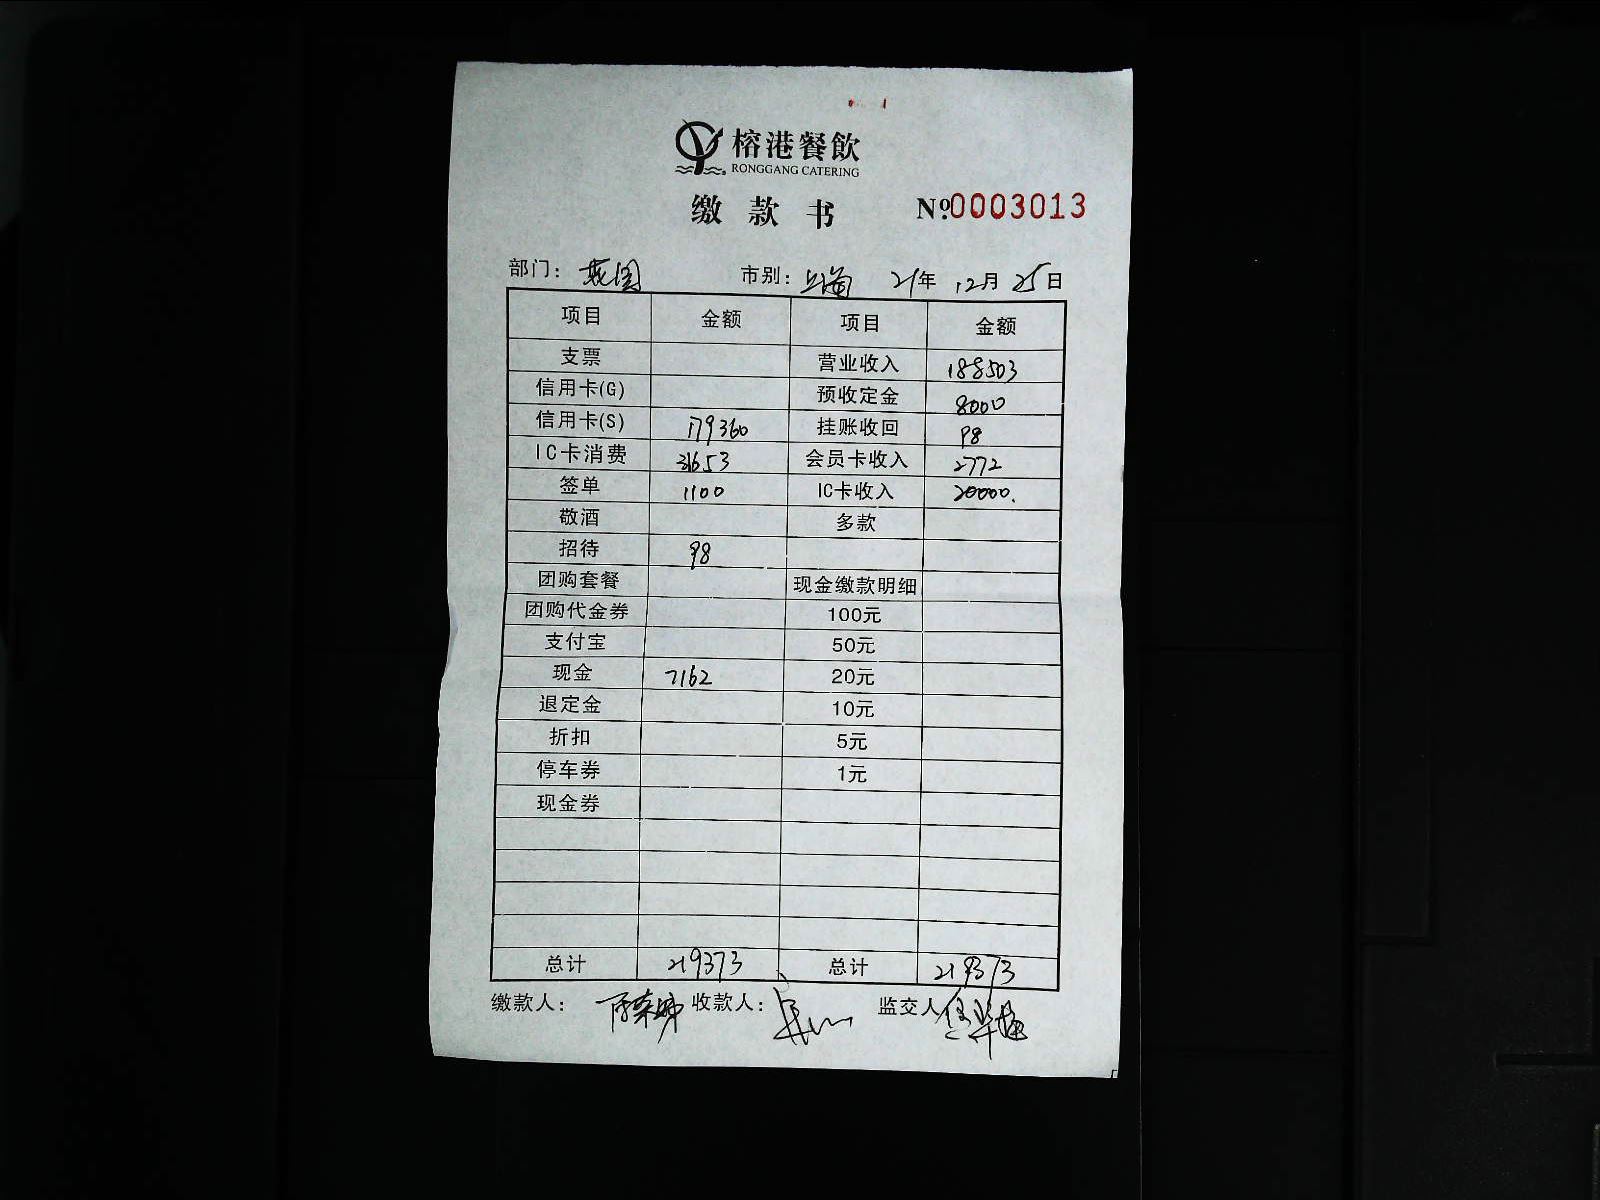 榕港餐飲
RONGGANG CATERING
缴款书 №0003013
部门： 市别：上海 21年 12月 25日
项目 金额 项目 金额
支票 营业收入 188503
信用卡(G) 预收定金 8000
信用卡(S) 179360 挂账收回 98
IC卡消费 31653 会员卡收入 2772
签单 1100 IC卡收入 20000.
敬酒 多款
招待 98
团购套餐 现金缴款明细
团购代金券 100元
支付宝 50元
现金 7162 20元
退定金 10元
折扣 5元
停车券 1元
现金券
总计 219373 总计 219373
缴款人： 收款人： 监交人